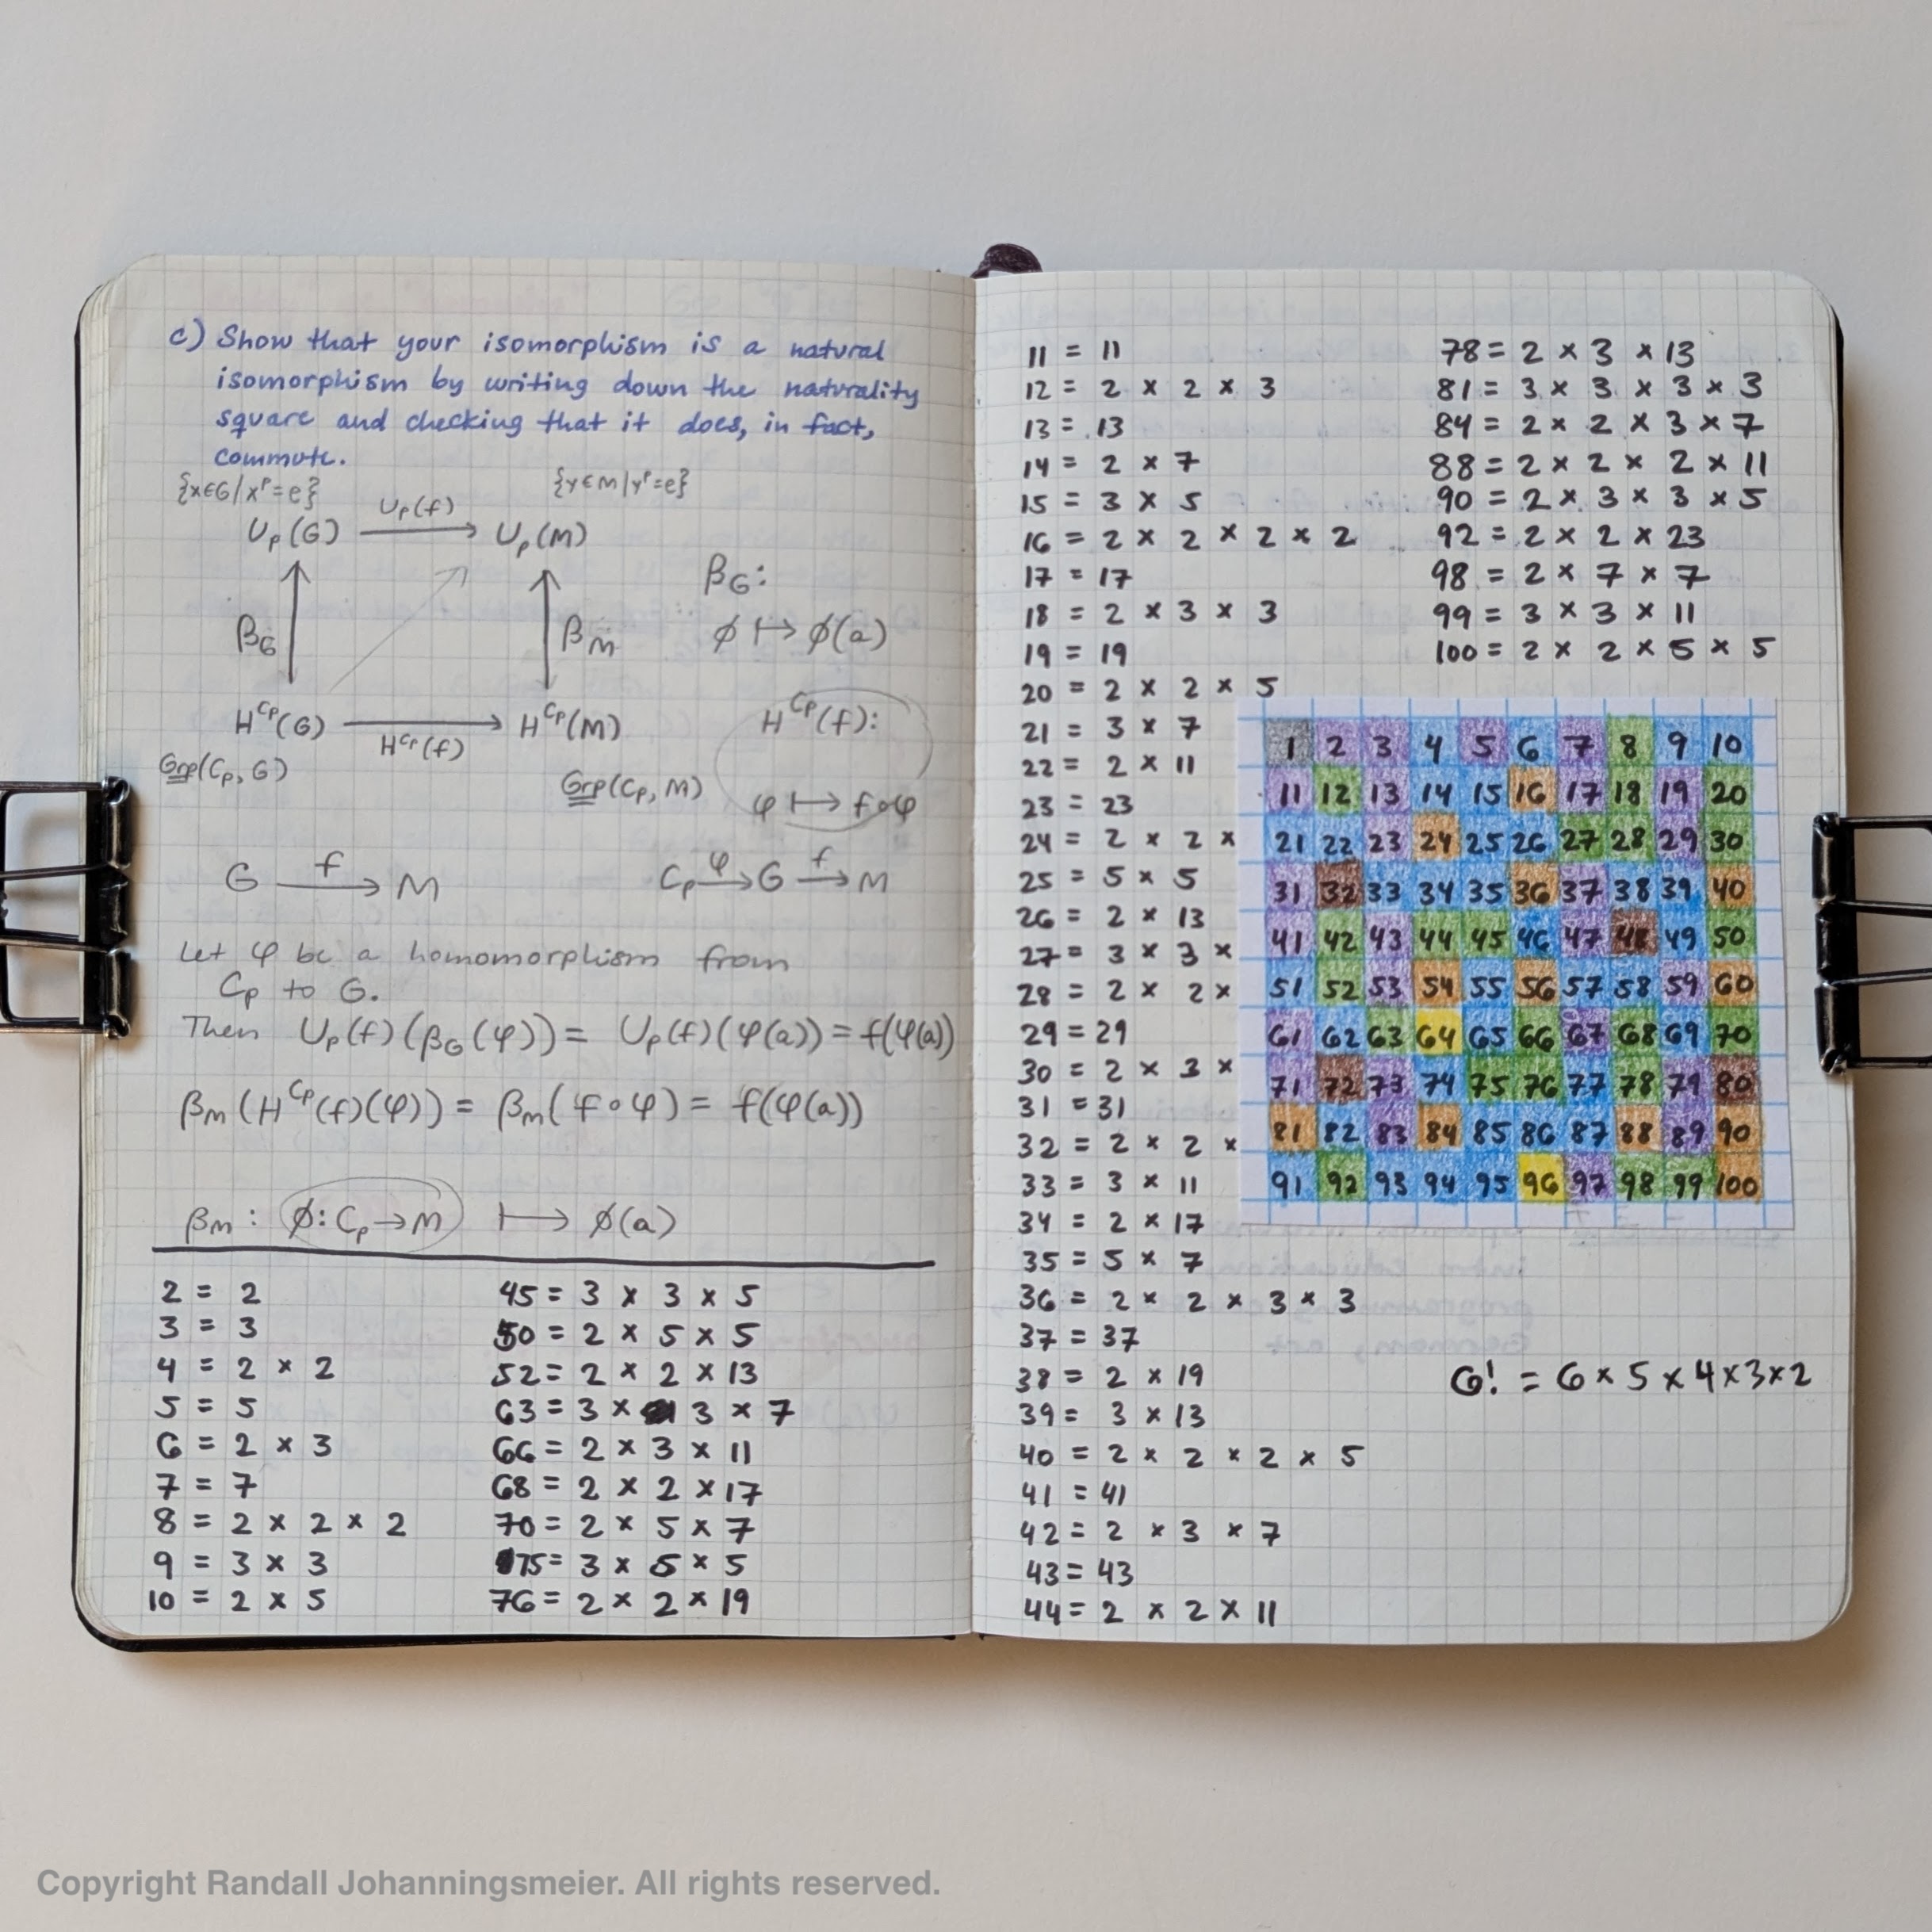 c) Show that your isomorphism is a natural
isomorphism by writing down the naturality
square and checking that it does, in fact,
commute.
{x∈G|xᵖ=e} {y∈M|yᵖ=e}
Uₚ(G) Uₚ(f) Uₚ(M)
β_G β_M
β_G:
ϕ ↦ ϕ(a)
H^Cp(G) H^Cp(f) H^Cp(M)
Grp(Cₚ, G) Grp(Cₚ, M)
H^Cp(f):
φ ↦ f∘φ
G →f M
Cₚ →φ G →f M
Let φ be a homomorphism from
Cₚ to G.
Then Uₚ(f)(β_G(φ)) = Uₚ(f)(φ(a)) = f(φ(a))
β_M(H^Cp(f)(φ)) = β_M(f∘φ) = f(φ(a))
β_M: ϕ: Cₚ → M ↦ ϕ(a)
2 = 2
3 = 3
4 = 2 × 2
5 = 5
6 = 2 × 3
7 = 7
8 = 2 × 2 × 2
9 = 3 × 3
10 = 2 × 5
45 = 3 × 3 × 5
50 = 2 × 5 × 5
52 = 2 × 2 × 13
63 = 3 × 3 × 7
66 = 2 × 3 × 11
68 = 2 × 2 × 17
70 = 2 × 5 × 7
75 = 3 × 5 × 5
76 = 2 × 2 × 19
11 = 11
12 = 2 × 2 × 3
13 = 13
14 = 2 × 7
15 = 3 × 5
16 = 2 × 2 × 2 × 2
17 = 17
18 = 2 × 3 × 3
19 = 19
20 = 2 × 2 × 5
21 = 3 × 7
22 = 2 × 11
23 = 23
24 = 2 × 2 ×
25 = 5 × 5
26 = 2 × 13
27 = 3 × 3 ×
28 = 2 × 2 ×
29 = 29
30 = 2 × 3 ×
31 = 31
32 = 2 × 2 ×
33 = 3 × 11
34 = 2 × 17
35 = 5 × 7
36 = 2 × 2 × 3 × 3
37 = 37
38 = 2 × 19
39 = 3 × 13
40 = 2 × 2 × 2 × 5
41 = 41
42 = 2 × 3 × 7
43 = 43
44 = 2 × 2 × 11
78 = 2 × 3 × 13
81 = 3 × 3 × 3 × 3
84 = 2 × 2 × 3 × 7
88 = 2 × 2 × 2 × 11
90 = 2 × 3 × 3 × 5
92 = 2 × 2 × 23
98 = 2 × 7 × 7
99 = 3 × 3 × 11
100 = 2 × 2 × 5 × 5
1 2 3 4 5 6 7 8 9 10
11 12 13 14 15 16 17 18 19 20
21 22 23 24 25 26 27 28 29 30
31 32 33 34 35 36 37 38 39 40
41 42 43 44 45 46 47 48 49 50
51 52 53 54 55 56 57 58 59 60
61 62 63 64 65 66 67 68 69 70
71 72 73 74 75 76 77 78 79 80
81 82 83 84 85 86 87 88 89 90
91 92 93 94 95 96 97 98 99 100
6! = 6 × 5 × 4 × 3 × 2
Copyright Randall Johanningsmeier. All rights reserved.